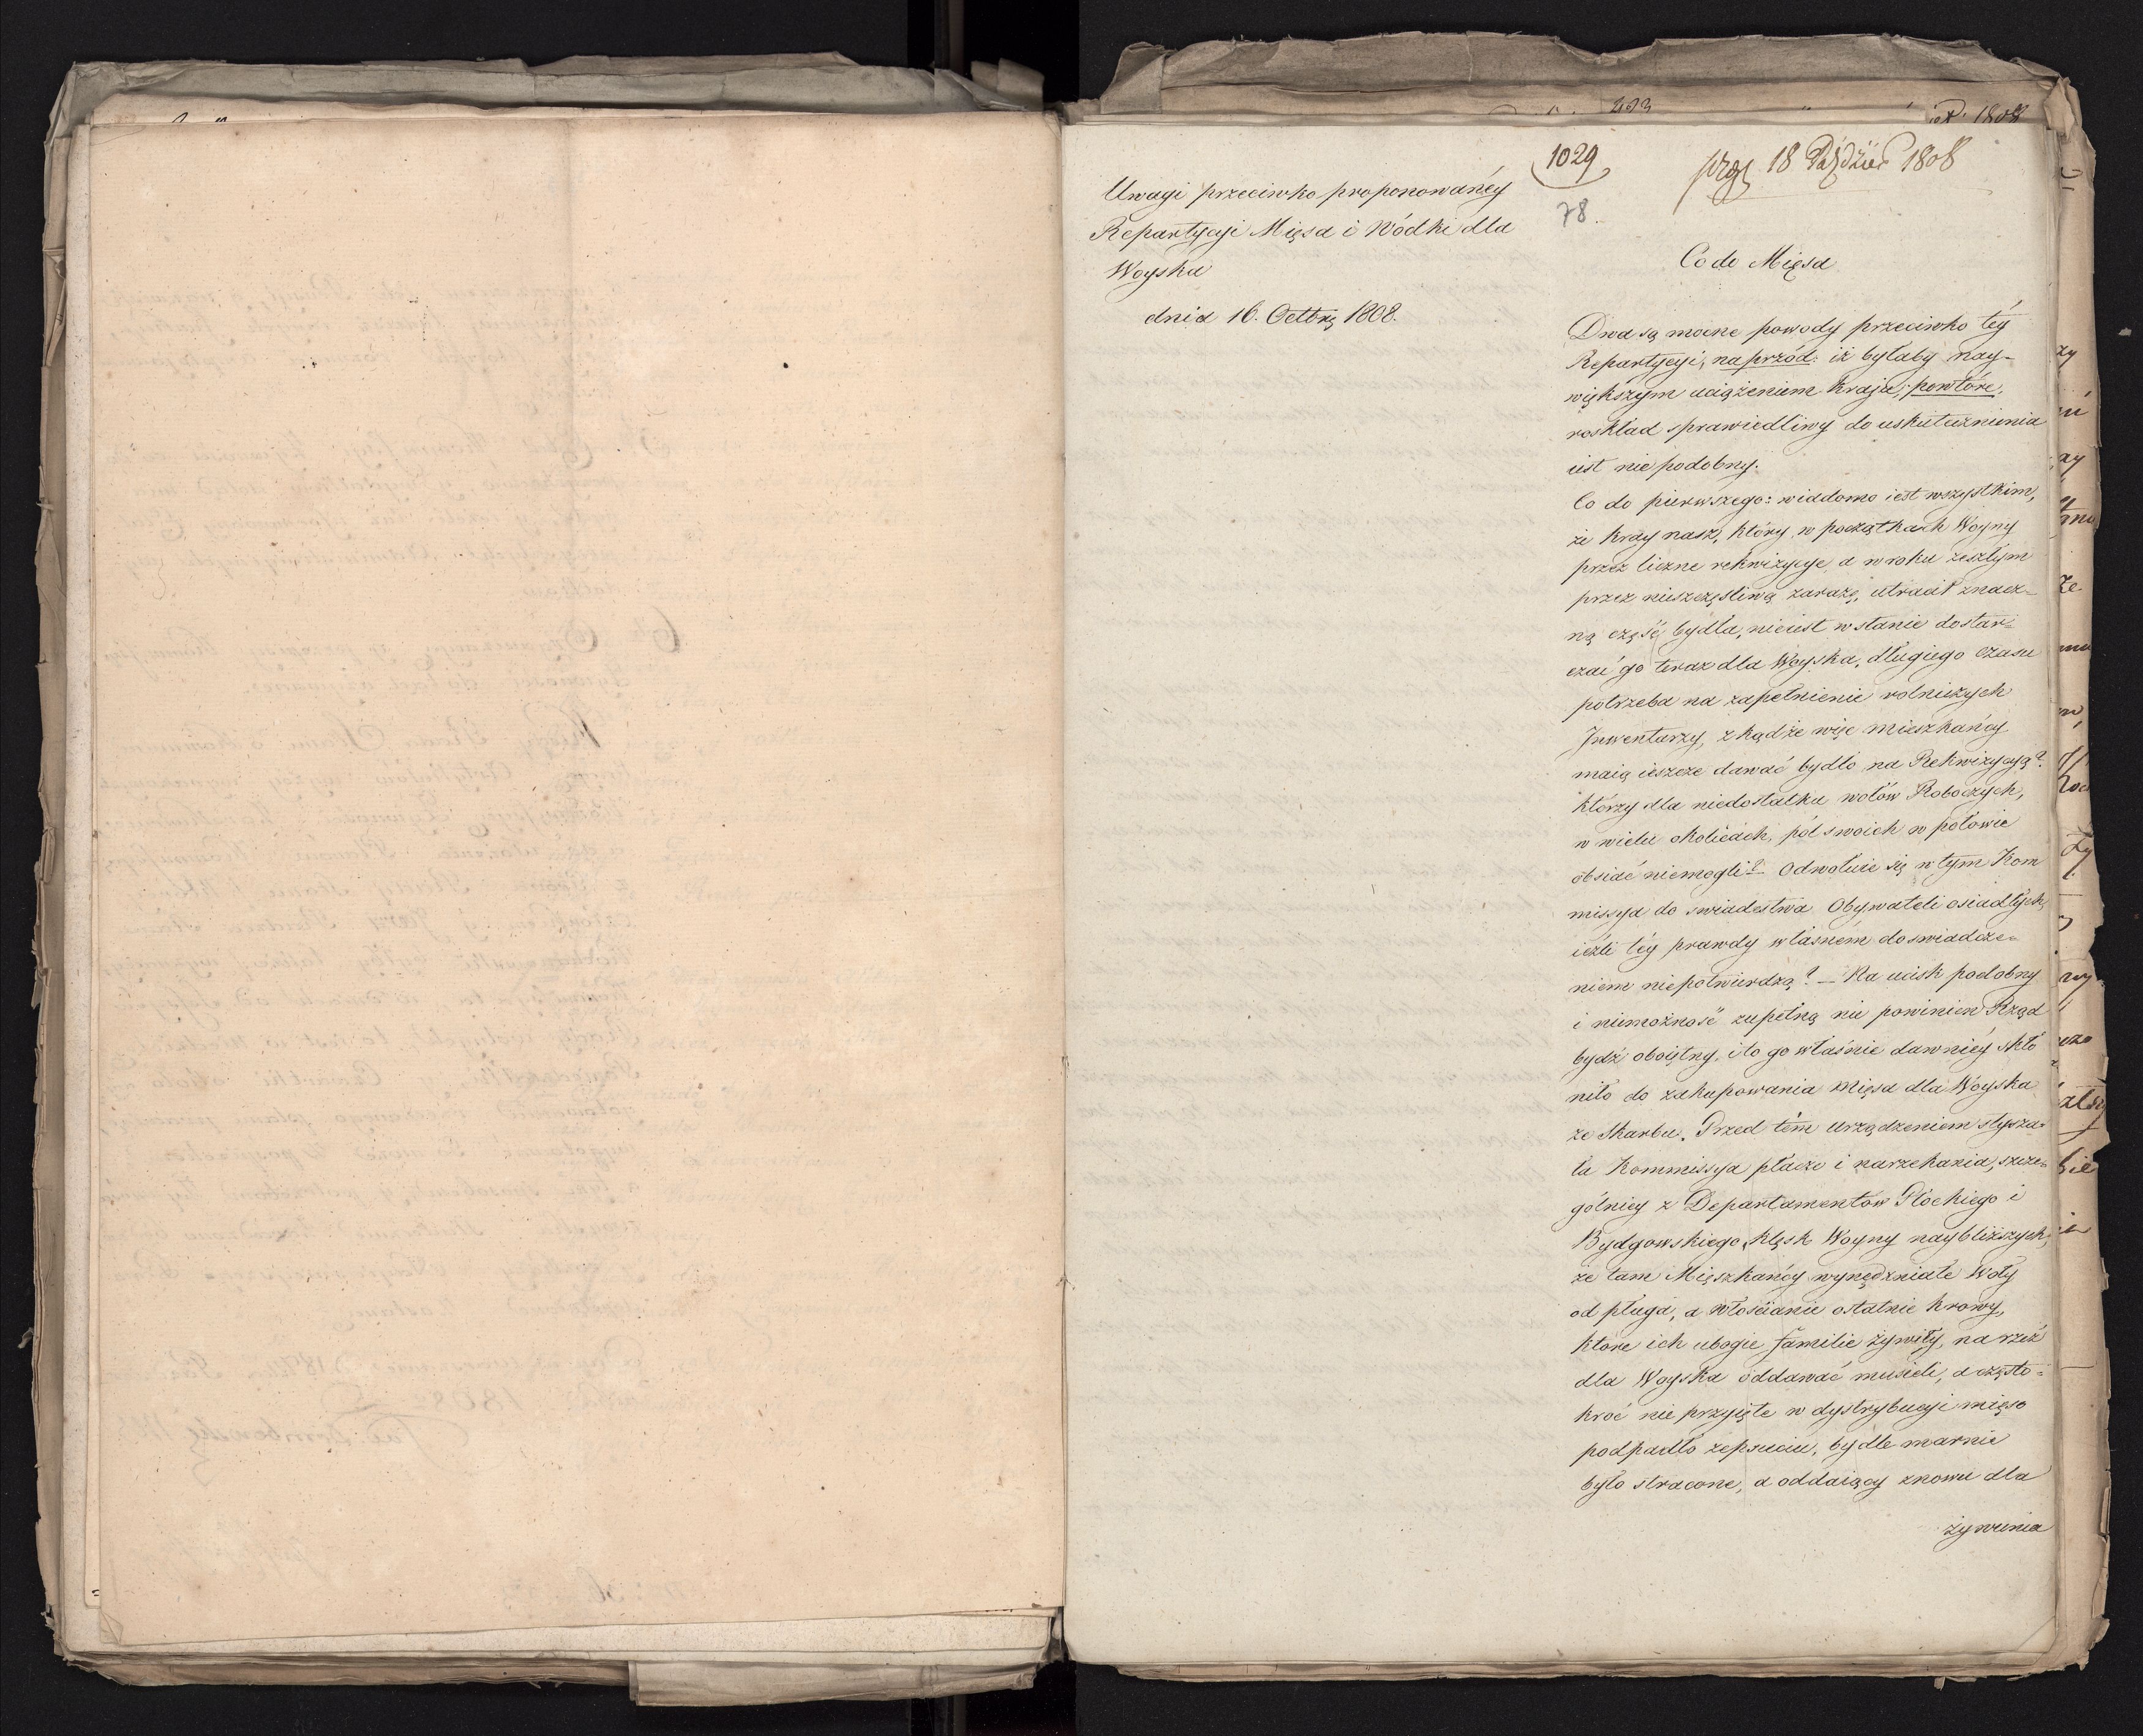 1029
78.
18 Paździer 1808
Uwagi przeciwko proponowanéy
Repartycyi Mięsa i Wódki dla
Woyska
dnia 16. Octbrą 1808.
Co do Mięsa
Dwa są mocne powody przeciwko téy
Repartycyi, naprzód: iż byłaby nay-
większym uciążeniem Kraju; powtóre,
roskład sprawiedliwy do uskutecznienia
iest nie podobny.
Co do pierwszego: wiadomo iest wszystkim,
że Kray nasz, który w początkach Woyny
przez liczne rekwizycye, a w roku zeszłym
przez nieszczęśliwą zarazę, utracił znacz-
ną część bydła, nieiest w stanie dostar-
czać go teraz dla Woyska, długiego czasu
potrzeba na zapełnienie rolniczych
Inwentarzy, z kądże więc mieszkańcy
maią ieszcze dawać bydło na Rekwizycyą?
którzy dla niedostatku wołów Roboczych,
w wielu okolicach, pól swoich w połowie
obsiać niemogli? Odwołuie się w tym Kom
missya do swiadectwa Obywateli osiadłych,
ieźli téy prawdy własném doswiadcze-
niem niepotwierdzą? — Na ucisk podobny
i niemożność zupełną nie powinien Rząd
bydź oboiętny, i to go właśnie dawniéy skło
niło do zakupowania mięsa dla Woyska
ze Skarbu. Przed tém urządzeniem słysza-
ła Kommissya płacze i narzekania, szcze-
gólniey z Departamentow Płockiego i
Bydgowskiego, klęsk Woyny naybliższych,
że tam Mięszkańcy wynędzniałe Woły
od pługa, a Włościanie ostatnie krowy,
ktore ich ubogie familie żywiły, na rzéź
dla Woyska oddawać musieli, a często-
kroć nie przyięte w dystrybucyi mięso
podpadło zepsuciu, bydle marnie
było stracone, a oddaiący znowu dla
żywienia